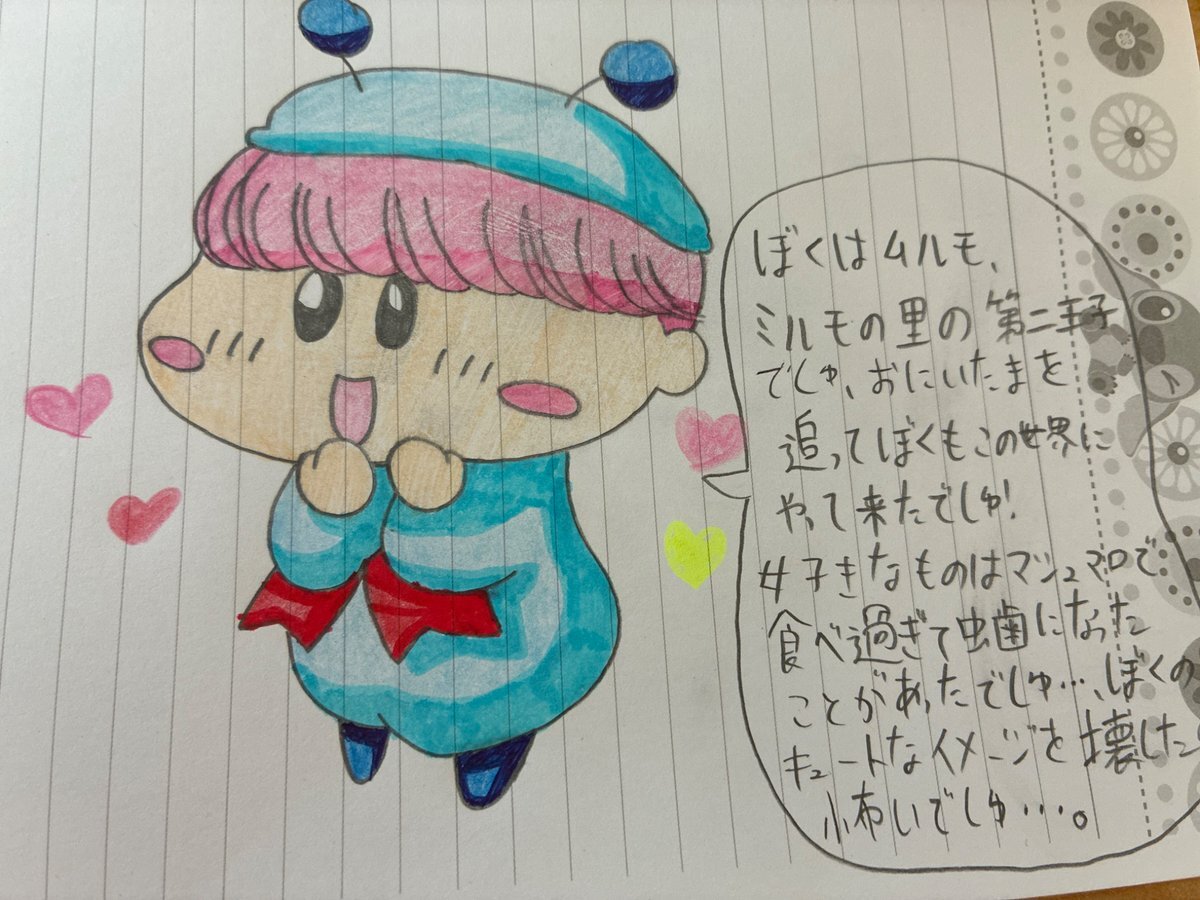 ぼくはムルモ、
ミルモの里の第二王子
でしゅ、おにいたまを
追ってぼくもこの世界に
やって来たでしゅ!
好きなものはマシュマロで
食べ過ぎて虫歯になった
ことがあったでしゅ…、ぼくの
キュートなイメージを壊した
怖いでしゅ…。